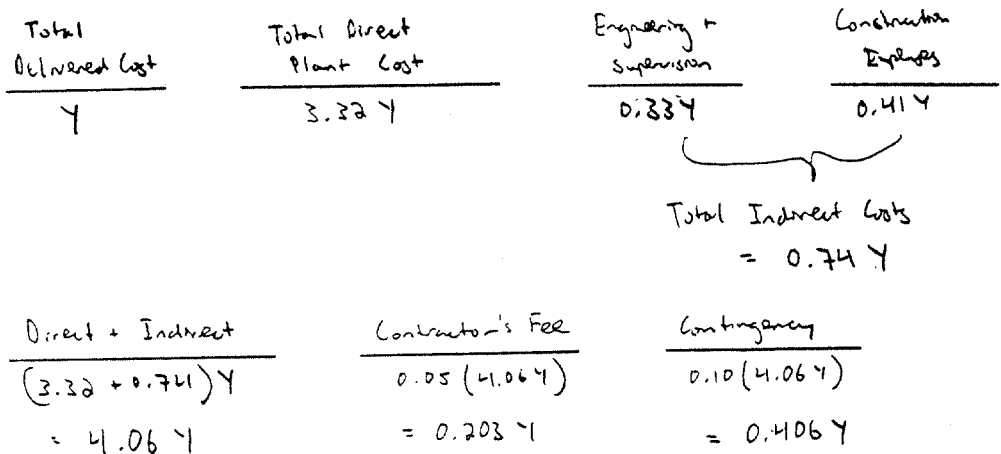 Total Delivered Cost
Y
Total Direct Plant Cost
3.32 Y
Engineering + Supervision
0.33Y
Construction Expenses
0.41Y
Total Indirect Costs
= 0.74 Y
Direct + Indirect
(3.32 + 0.74) Y
= 4.06 Y
Contractor's Fee
0.05 (4.06 Y)
= 0.203 Y
Contingency
0.10 (4.06 Y)
= 0.406 Y